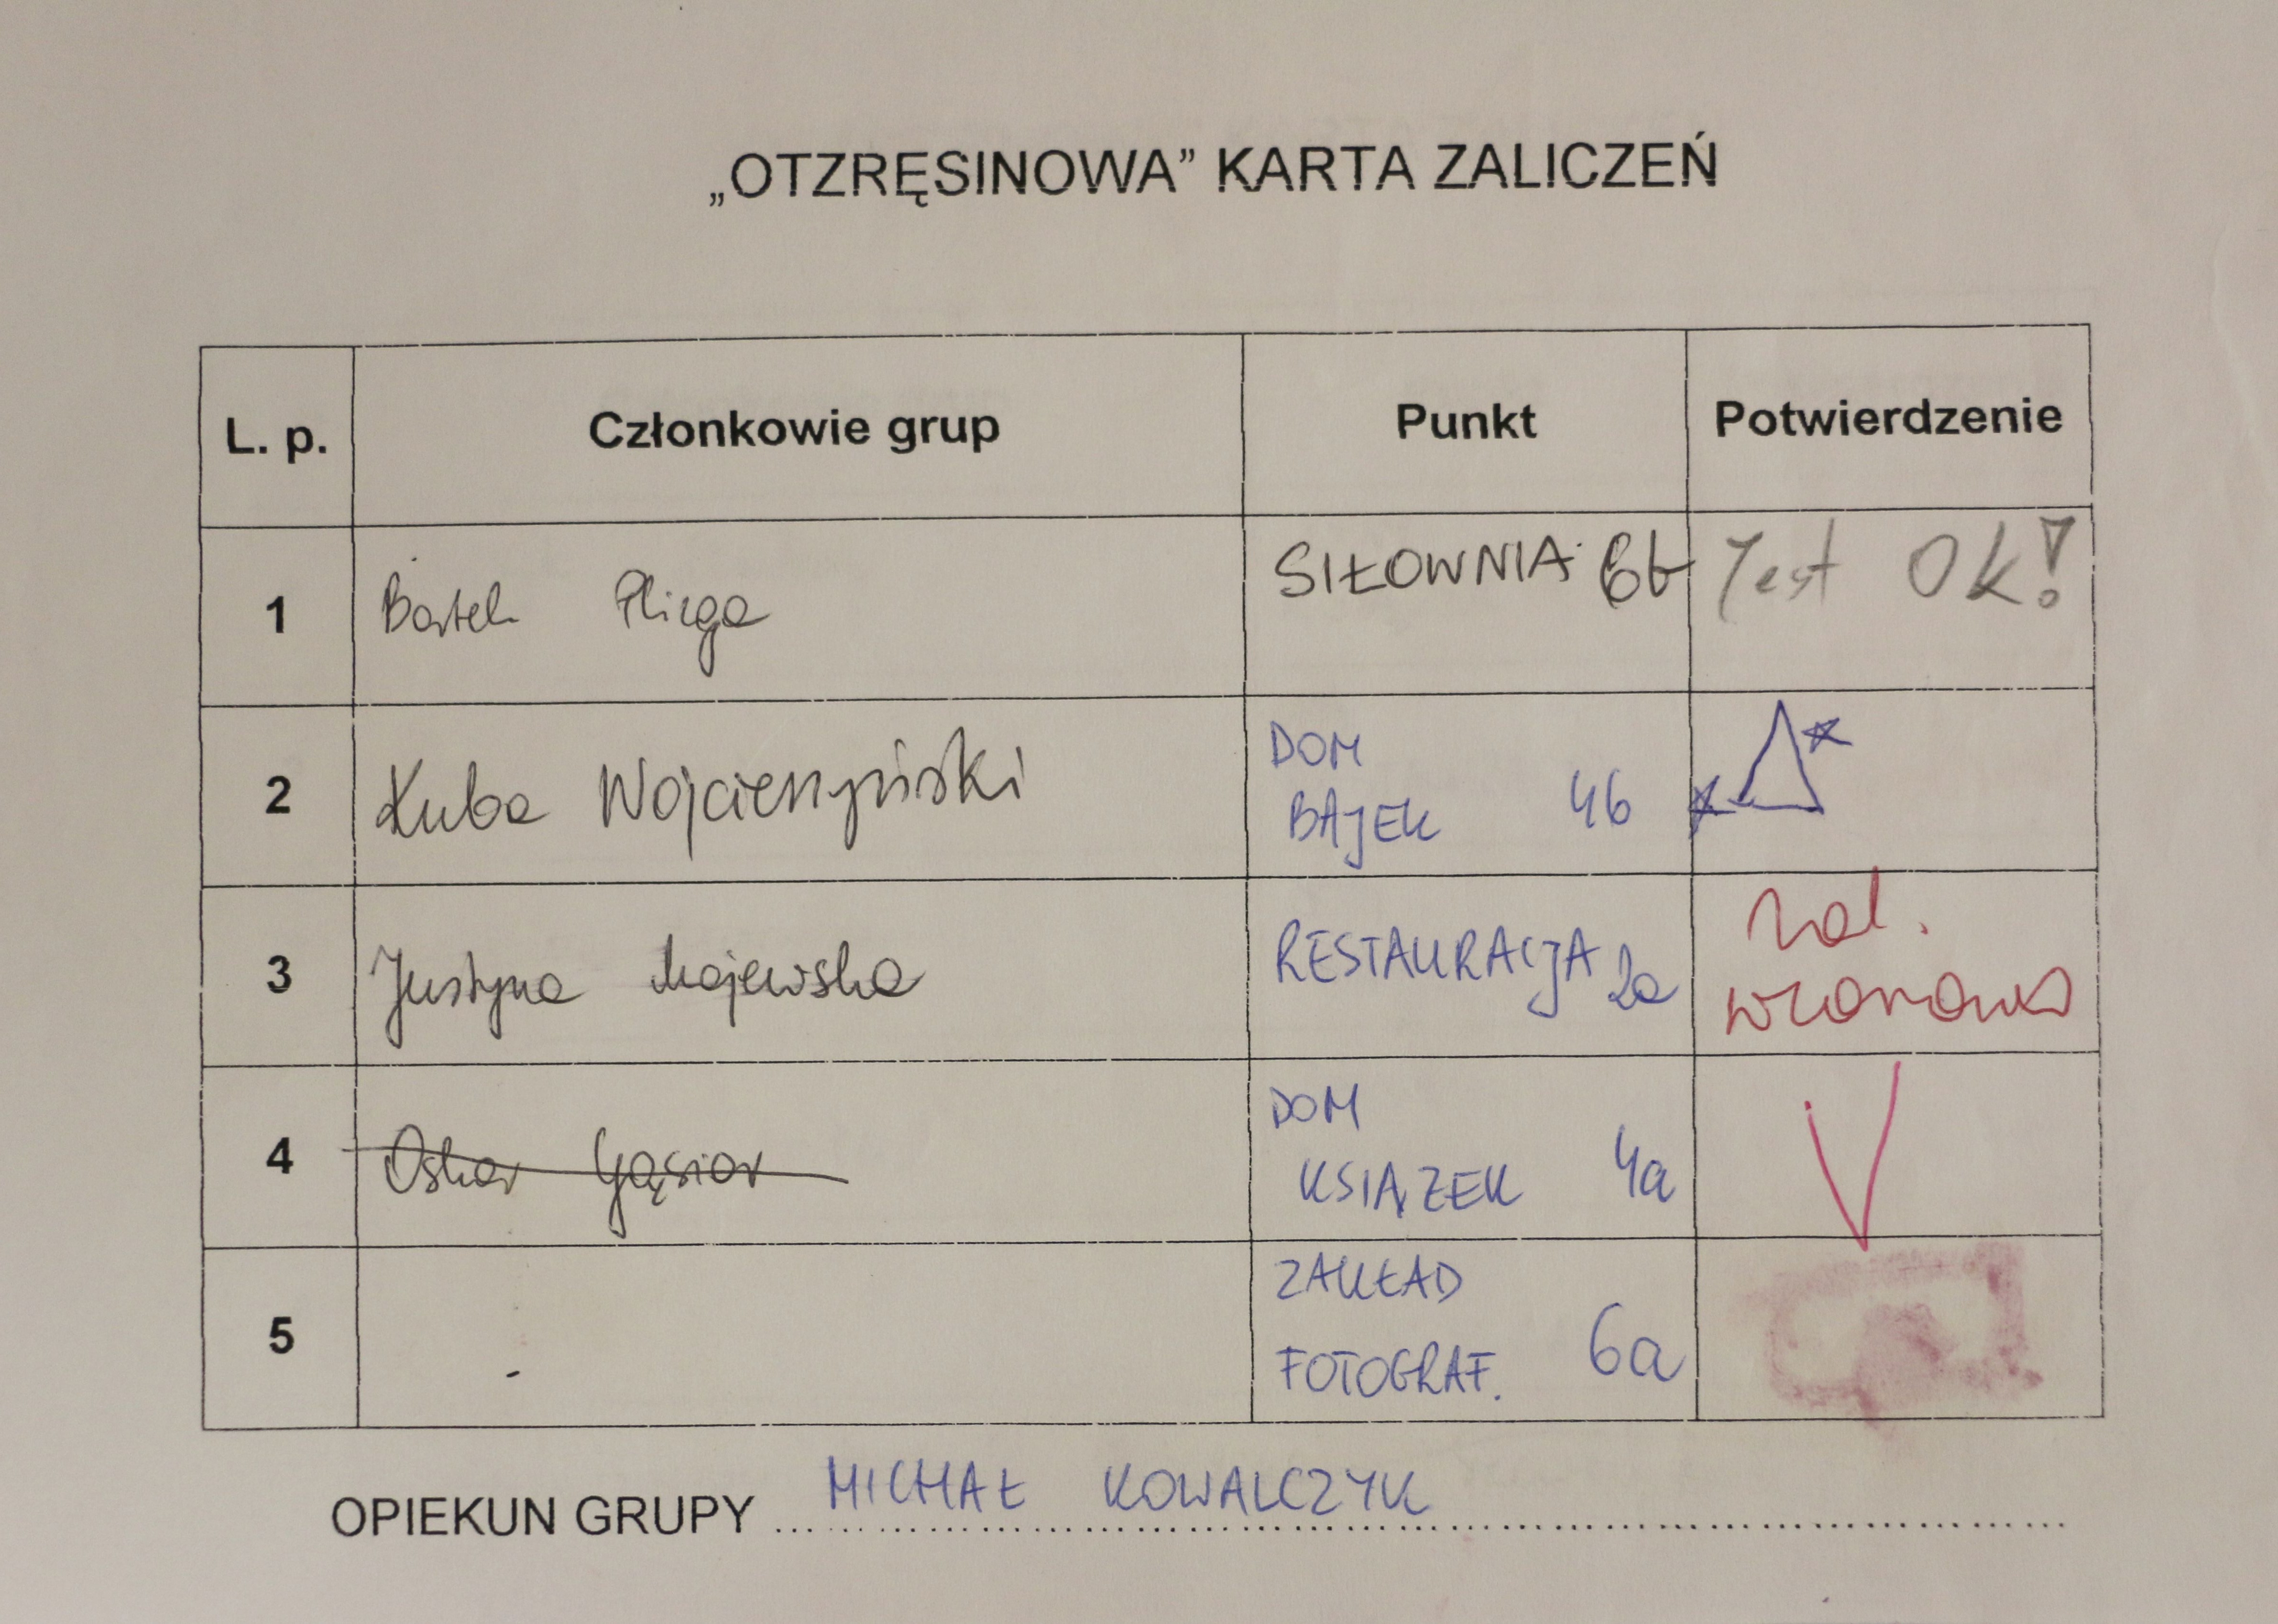 „OTZRĘSINOWA” KARTA ZALICZEŃ
L. p. Członkowie grup Punkt Potwierdzenie
1 Bartek Pliega SIŁOWNIA 6b Jest Ok!
2 Kuba DOM
BAJEK 46
3 Justyna Majewska RESTAURACJA 2a zal.
4 Oskar Gąsior DOM
KSIĄZEK 4a
5 ZAKŁAD
FOTOGRAF. 6a
OPIEKUN GRUPY MICHAŁ KOWALCZYK